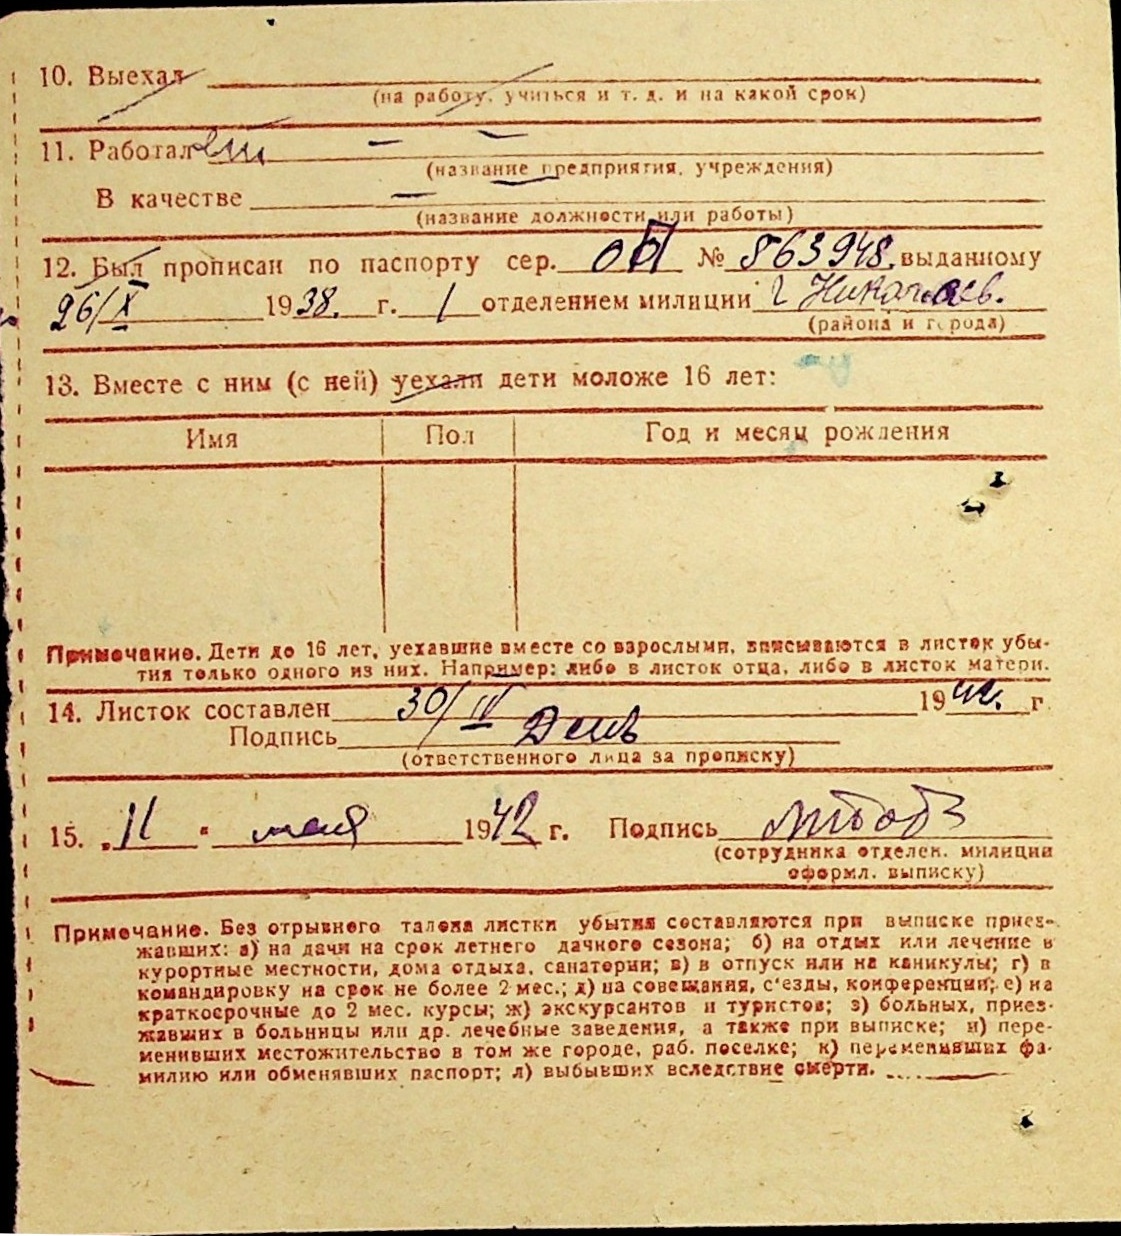 10. Выехал
(на работу, учиться и т. д. и на какой срок)
11. Работал — —
(название предприятия, учреждения)
В качестве —
(название должности или работы)
12. Был прописан по паспорту сер. № 563948, выданному
26/X 1938. г. 1 отделением милиции г Николаев.
(района и города)
13. Вместе с ним (с ней) уехали дети моложе 16 лет:
Имя Пол Год и месяц рождения
Примечание. Дети до 16 лет, уехавшие вместе со взрослыми, вписываются в листок убы-
тия только одного из них. Например: либо в листок отца, либо в листок матери.
14. Листок составлен 30/IV 1942. г.
Подпись
(ответственного лица за прописку)
15. „11 " мая 1942 г. Подпись
(сотрудника отделен. милиции
оформл. выписку)
Примечание. Без отрывного талона листки убытия составляются при выписке приез-
жавших: а) на дачи на срок летнего дачного сезона; б) на отдых или лечение в
курортные местности, дома отдыха, санатории; в) в отпуск или на каникулы; г) в
командировку на срок не более 2 мес.; д) на совещания, с'езды, конференции; е) на
краткосрочные до 2 мес. курсы; ж) экскурсантов и туристов; з) больных, приез-
жавших в больницы или др. лечебные заведения, а также при выписке; и) пере-
менивших местожительство в том же городе, раб. поселке; к) переменивших фа-
милию или обменявших паспорт; л) выбывших вследствие смерти.